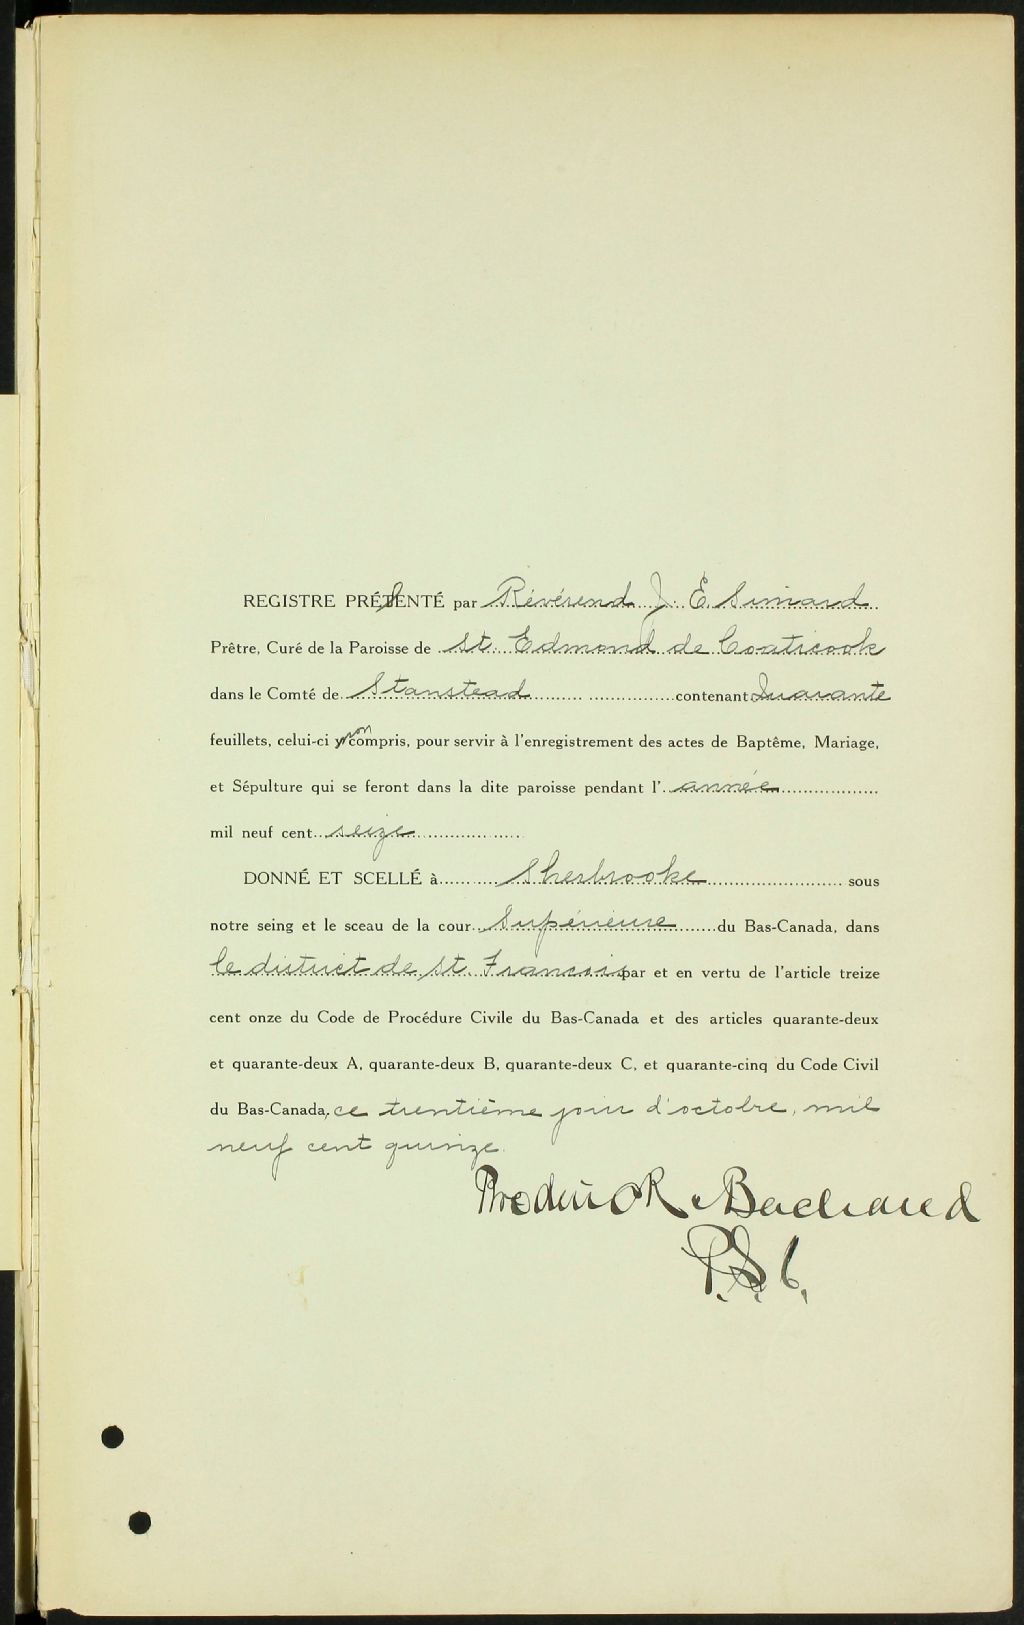 REGISTRE PRÉSENTÉ par Révérend J. E. Simard
Prêtre, Curé de la Paroisse de St. Edmond de Coaticook
dans le Comté de Stanstead contenant Quarante
feuillets, celui-ci non compris, pour servir à l'enregistrement des actes de Baptême, Mariage,
et Sépulture qui se feront dans la dite paroisse pendant l' année
mil neuf cent seize
DONNÉ ET SCELLÉ à Sherbrooke sous
notre seing et le sceau de la cour Supérieure du Bas-Canada, dans
le district de St. Francois par et en vertu de l'article treize
cent onze du Code de Procédure Civile du Bas-Canada et des articles quarante-deux
et quarante-deux A, quarante-deux B, quarante-deux C, et quarante-cinq du Code Civil
du Bas-Canada, ce trentième jour d'octobre, mil
neuf cent quinze.
Roderick Bachand
P.S.C.